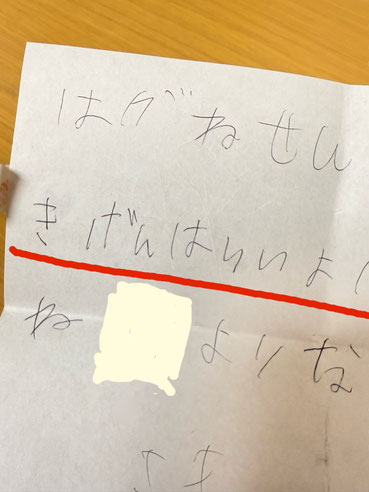 はがねせん
きげんはいいよ
ね よりな